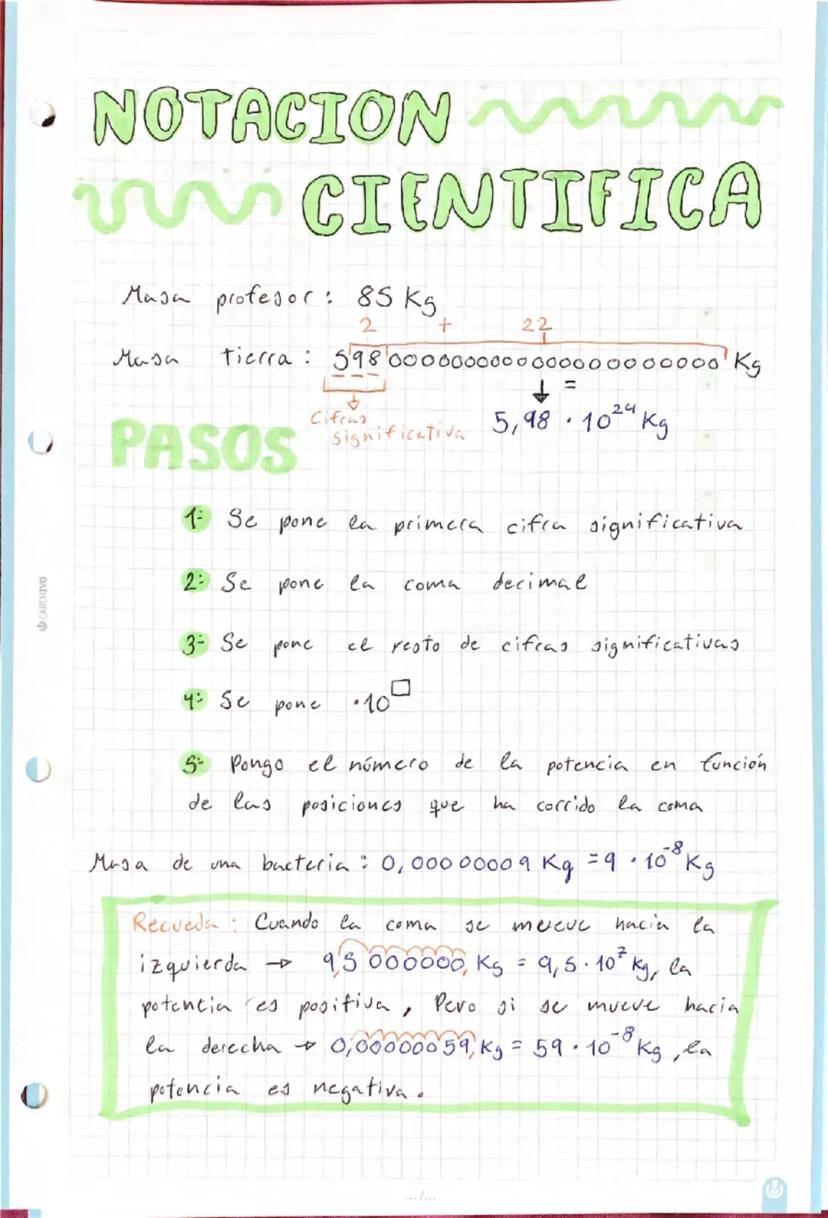 NOTACION
CIENTIFICA
Masa profesor: 85 Kg
2 + 22
Masa tierra: 5980000000000000000000000 Kg
=
Cifras
significativa
5,98 · 10²⁴ Kg
PASOS
1- Se pone la primera cifra significativa
2- Se pone la coma decimal
3- Se pone el resto de cifras significativas
4- Se pone ·10□
5- Pongo el número de la potencia en función
de las posiciones que ha corrido la coma
Masa de una bacteria: 0,00000009 Kg = 9 · 10⁻⁸ Kg
Recueda: Cuando la coma se mueve hacia la
izquierda → 9,5000000, Kg = 9,5 · 10⁷ Kg, la
potencia es positiva, Pero si se mueve hacia
la derecha → 0,00000059, Kg = 59 · 10⁻⁸ Kg, la
potencia es negativa.
CARCHIVO
.../...